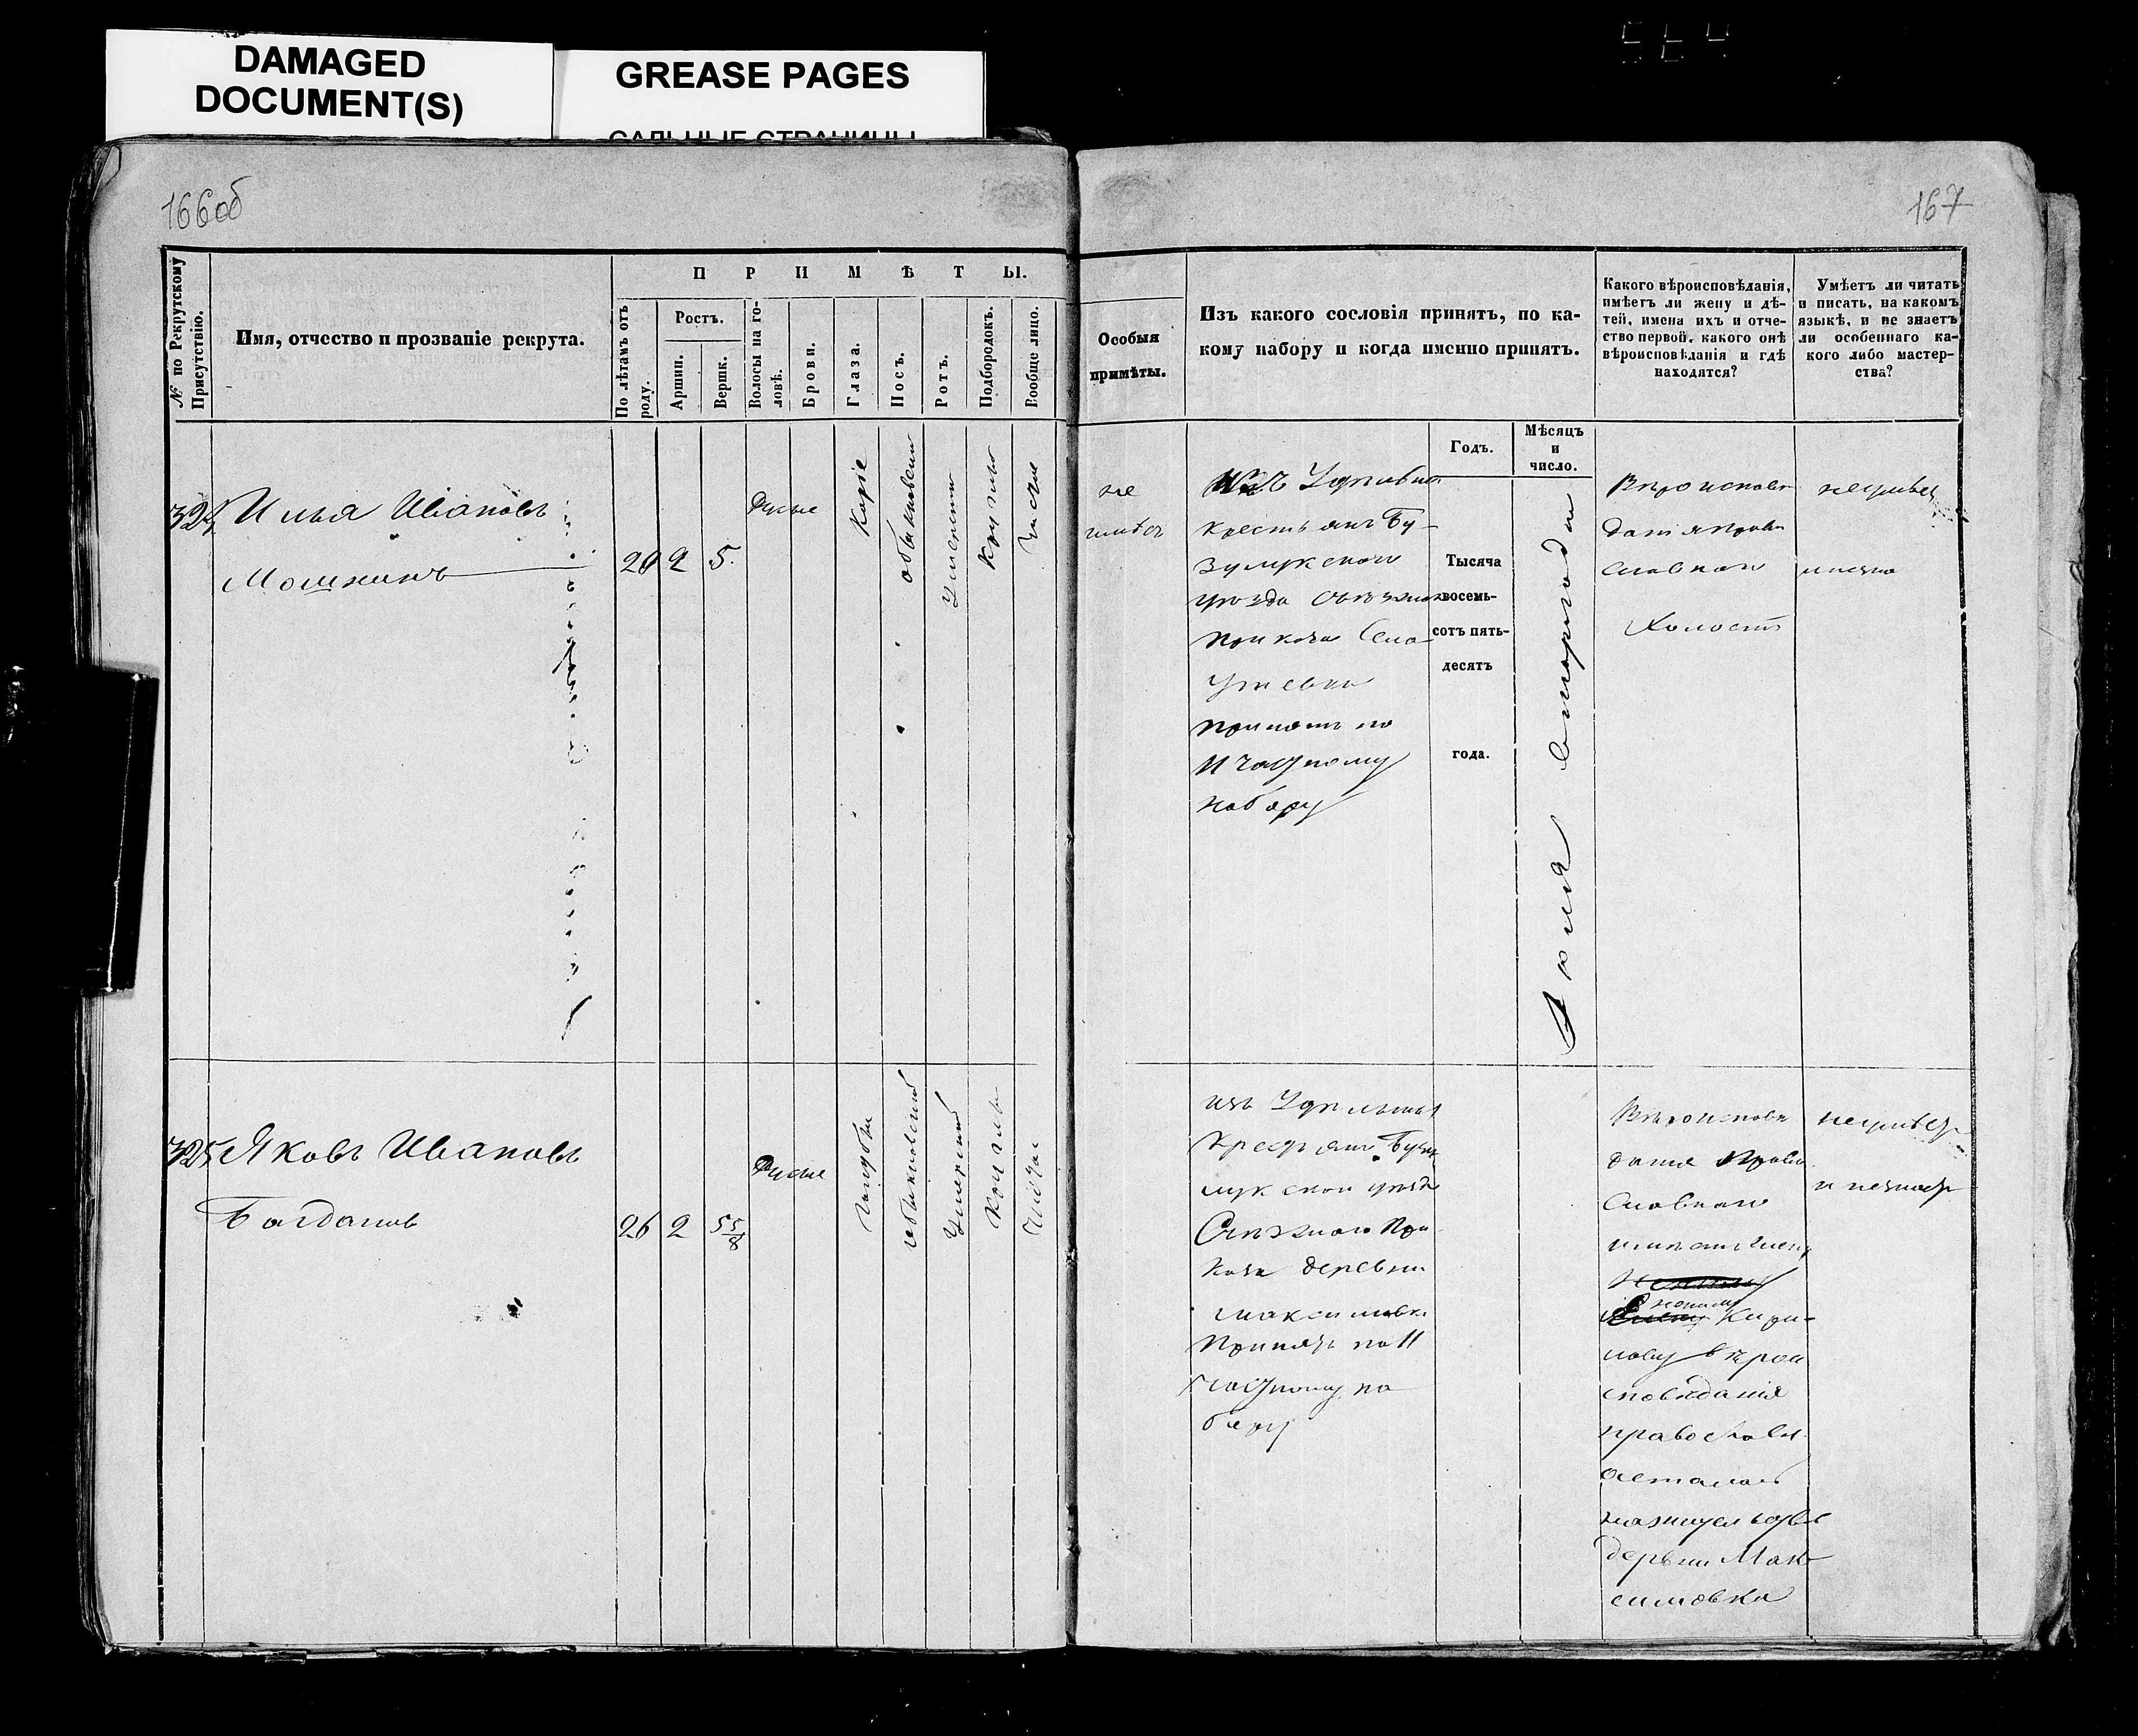 DAMAGED
DOCUMENT(S)
GREASE PAGES
САЛЬНЫЕ СТРАНИЦЫ
166об
167
№ по Рекрутскому
Присутствію.
Имя, отчество и прозваніе рекрута.
ПРИМѢТЫ.
По лѣтамъ отъ
роду.
Ростъ.
Аршин.
Вершк.
Волосы на го-
ловѣ.
Брови.
Глаза.
Носъ.
Ротъ.
Подбородокъ.
Вообще лицо.
Особыя
примѣты.
Изъ какого сословія принятъ, по ка-
кому набору и когда именно принятъ.
Годъ.
Мѣсяцъ
и
число.
Какого вѣроисповѣданія,
имѣетъ ли жену и дѣ-
тей, имена ихъ и отче-
ство первой, какого онѣ
вѣроисповѣданія и гдѣ
находятся?
Умѣетъ ли читать
и писать, на какомъ
языкѣ, и не знаетъ
ли особеннаго ка-
кого либо мастер-
ства?
324
Илья Ивановъ
Мошкинъ
20
2
5.
Русые
Каріе
обыкновен
Умерен
Кругло
Чистое
не
имѣетъ
Изъ Удельных
крестьянъ Бу-
зулукскаго
уезда
приказа Села
Утевки
принятъ по
II частному
набору
Тысяча
восемь-
сотъ пять-
десятъ
года.
Іюля втораго дня
Вѣроисповѣ
данія право
славнаго
Холостъ
неумѣет
325
Яковъ Ивановъ
Багдановъ
26
2
5 5/8
Русые
голубые
обыкновенный
Умеренный
Кругль
Чистое
изъ Удельных
крестьянъ Бузу
лукскаго уезда
При
каза деревни
Максимовки
Принятъ по II
частному на
бору
Вѣроисповѣ
данія Право
славнаго
имѣетъ жену
Кири-
лову вѣрои
сповѣданія
православн.
осталась
на жительствѣ
дервни Мак
симовки
неумѣетъ
и незнаетъ